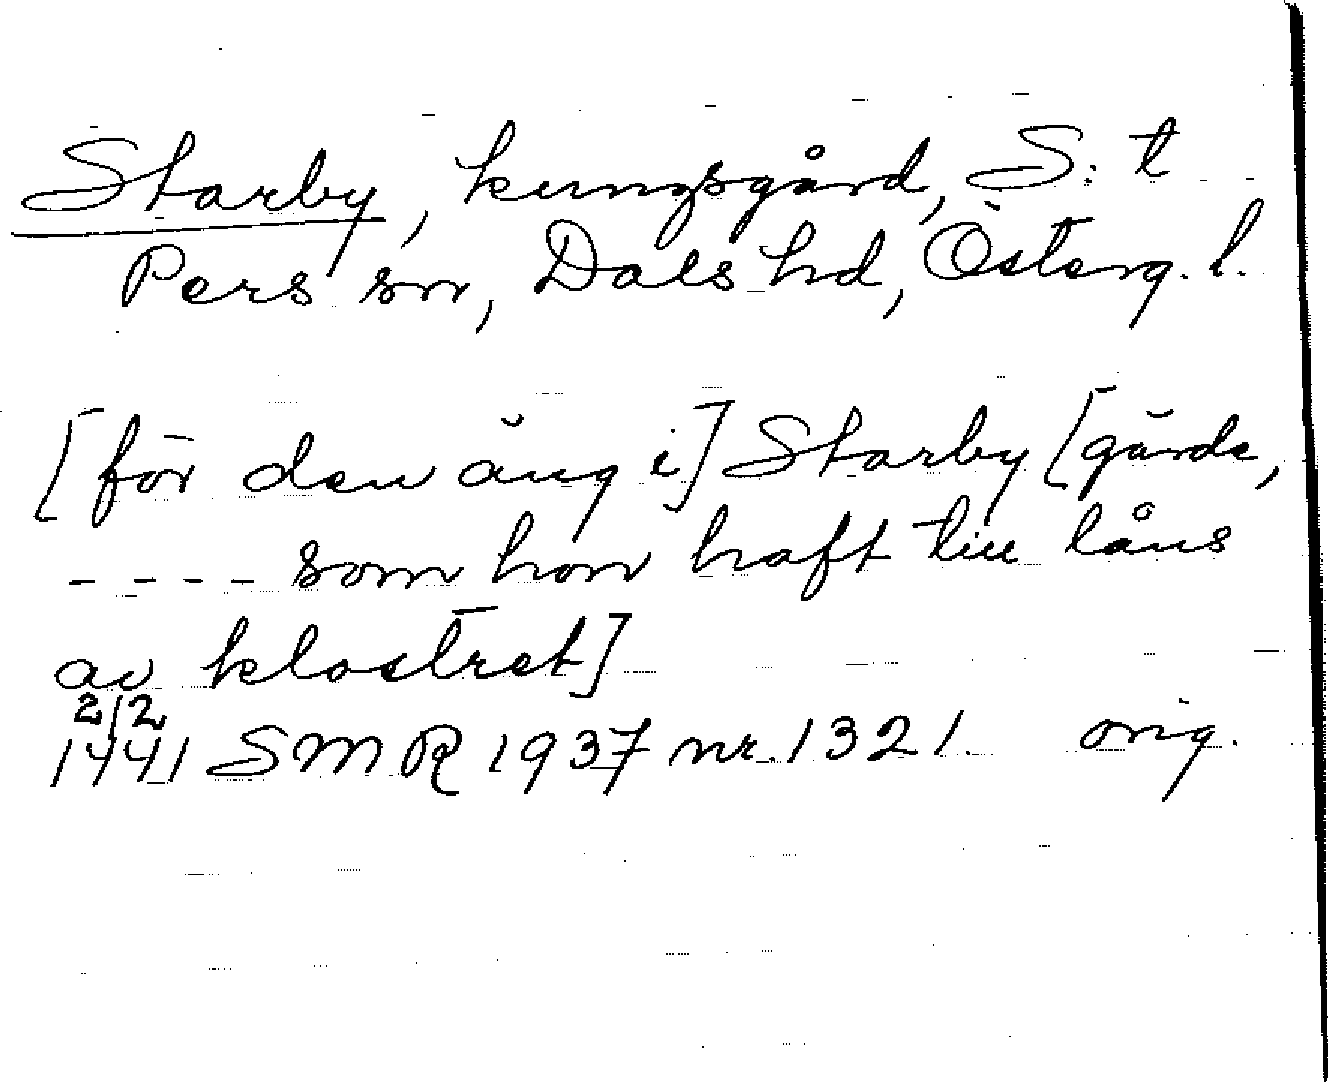 Starby, kungsgård, S:t
Pers sn, Dals hd, Österg. l.
[för den äng i] Starby [gärde,
---- som hon haft till låns
av klostret]
2/2
1441 SMR 1937 nr. 1321. orig.